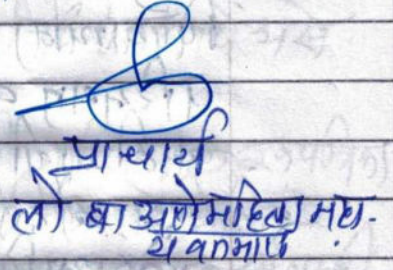 प्राचार्य
लो बा अणे महिला महा.
यवतमाळ